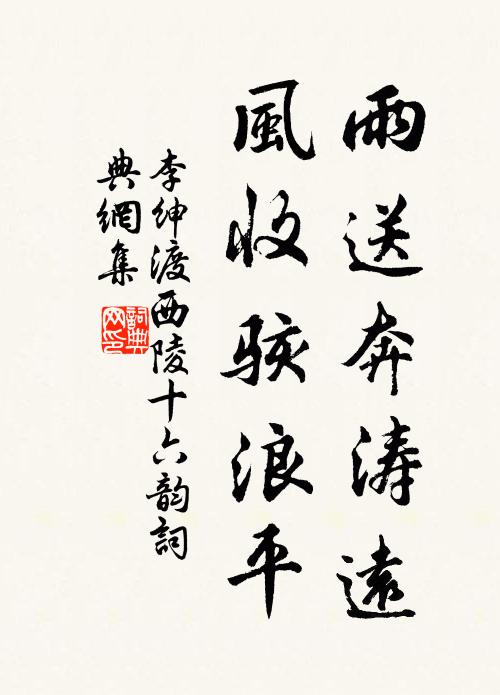 雨送奔涛遠
風收駭浪平
李紳渡西陵十六韵詞
典網集
詞典
网印